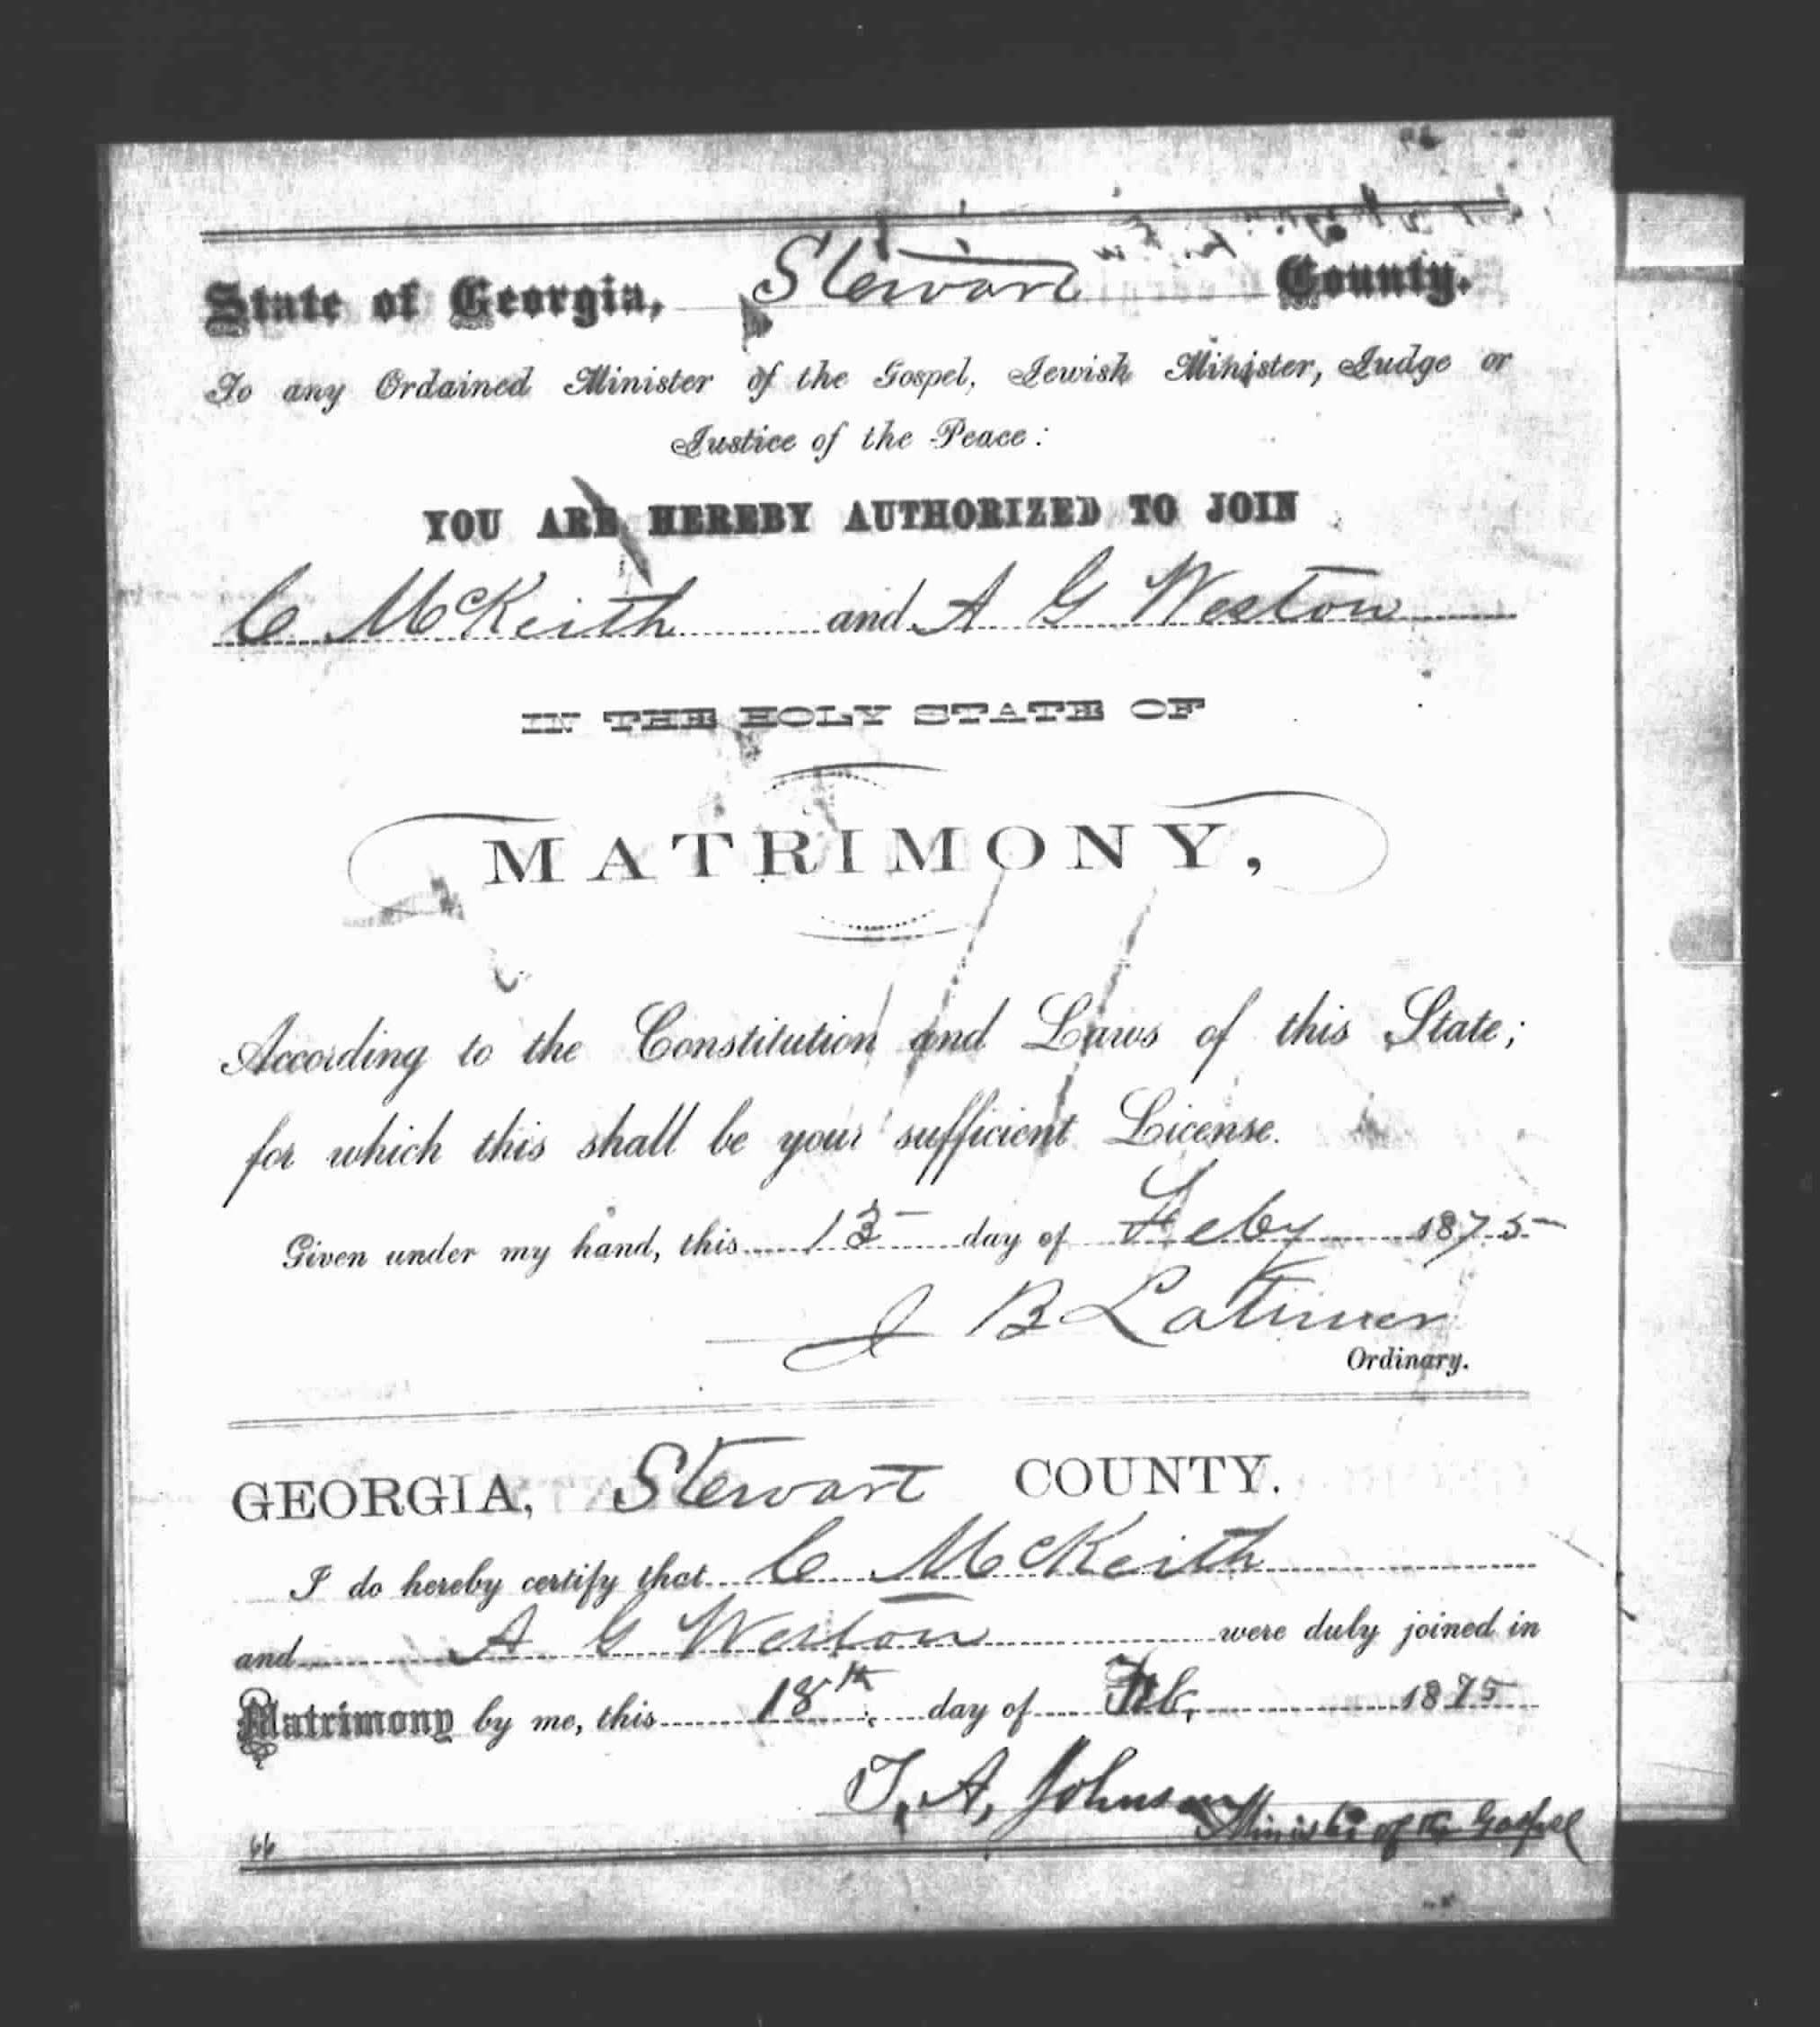 State of Georgia, Stewart County.
To any Ordained Minister of the Gospel, Jewish Minister, Judge or
Justice of the Peace:
YOU ARE HEREBY AUTHORIZED TO JOIN
C McKeith and A G Weston
IN THE HOLY STATE OF
MATRIMONY,
According to the Constitution and Laws of this State;
for which this shall be your sufficient License.
Given under my hand, this 13 day of Feby 1875
J B Latimer
Ordinary.
GEORGIA, Stewart COUNTY.
I do hereby certify that C McKeith
and A G Weston were duly joined in
Matrimony by me, this 18th day of Feb, 1875
T, A, Johnson
Minister of the Gospel
66